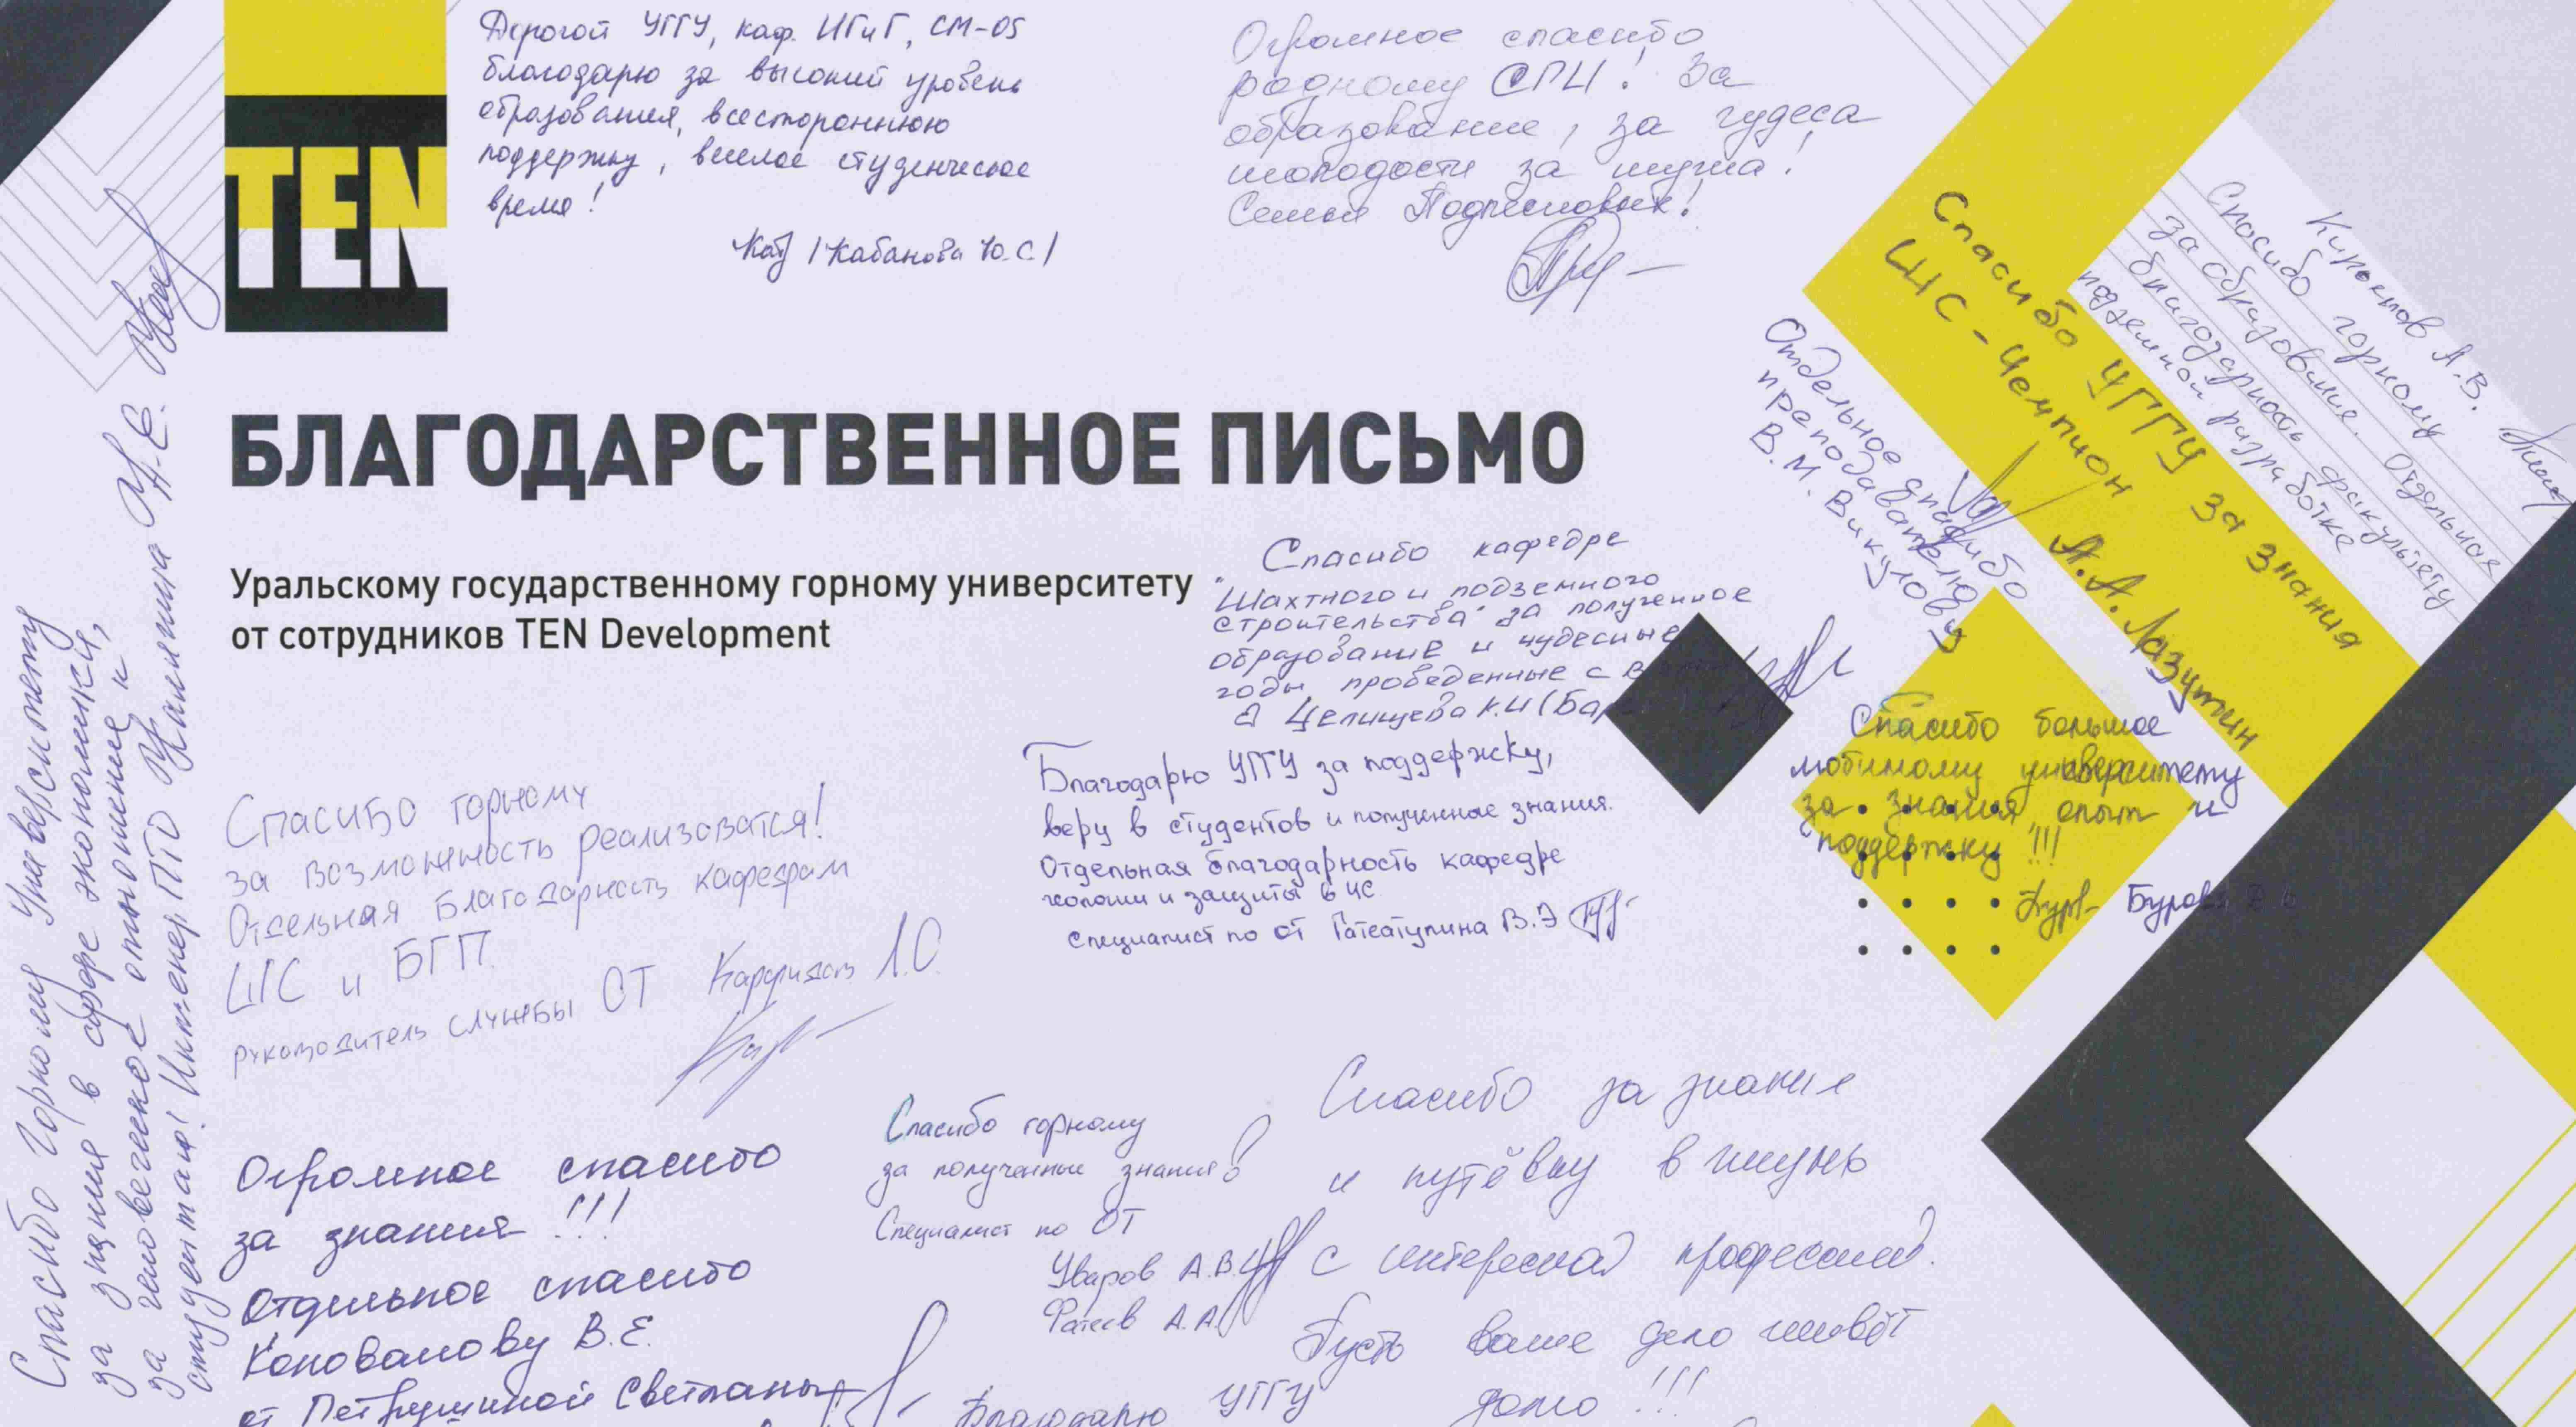 TEN
Дорогой УГГУ, каф. ИГиГ, СМ-05
благодарю за высокий уровень
образования, всестороннюю
поддержку, веселое студенческое
время!
/Кабанова Ю.С./
Огромное спасибо
родному СПЦ! За
образование, за чудеса
молодости за мужа!
Семья
Кирьков А.В.
Спасибо горному
за образование. Отдельная
благодарность факультету
подземной разработке
Спасибо УГГУ за знания
ШС - Чемпион А.А. Лазутин
Отдельное спасибо
преподавателю
В.М. Викулову
БЛАГОДАРСТВЕННОЕ ПИСЬМО
Уральскому государственному горному университету
от сотрудников TEN Development
Спасибо кафедре
"Шахтного и подземного
строительства" за полученное
образование и чудесные
годы, проведенные с
Целищева К.И (Бар
Спасибо большое
любимому университету
за знания, опыт и
поддержку !!!
Бурова
Благодарю УГГУ за поддержку,
веру в студентов и полученные знания.
Отдельная благодарность кафедре
геологии и защиты в ЧС
Специалист по ОТ Гатеатулина В.Э
Спасибо горному
за возможность реализоватся!
Отдельная благодарность кафедрам
ШС и БГП.
руководитель службы ОТ Карфидов Л.О.
Спасибо Горному Университету
за знания в сфере экономики,
за человеческое отношение к
студентам! Инженер ПТО Н.Е.
Огромное спасибо
за знания !!!
Отдельное спасибо
Коновалову В.Е.
от Петрушиной Светланы
Спасибо горному
за полученные знания!
Специалист по ОТ
Уваров А.В.
Фатеев А.А.
Спасибо за знания
и путёвку в жизнь
с интересной профессией.
Пусть ваше дело живёт
долго !!!
Благодарю УГГУ